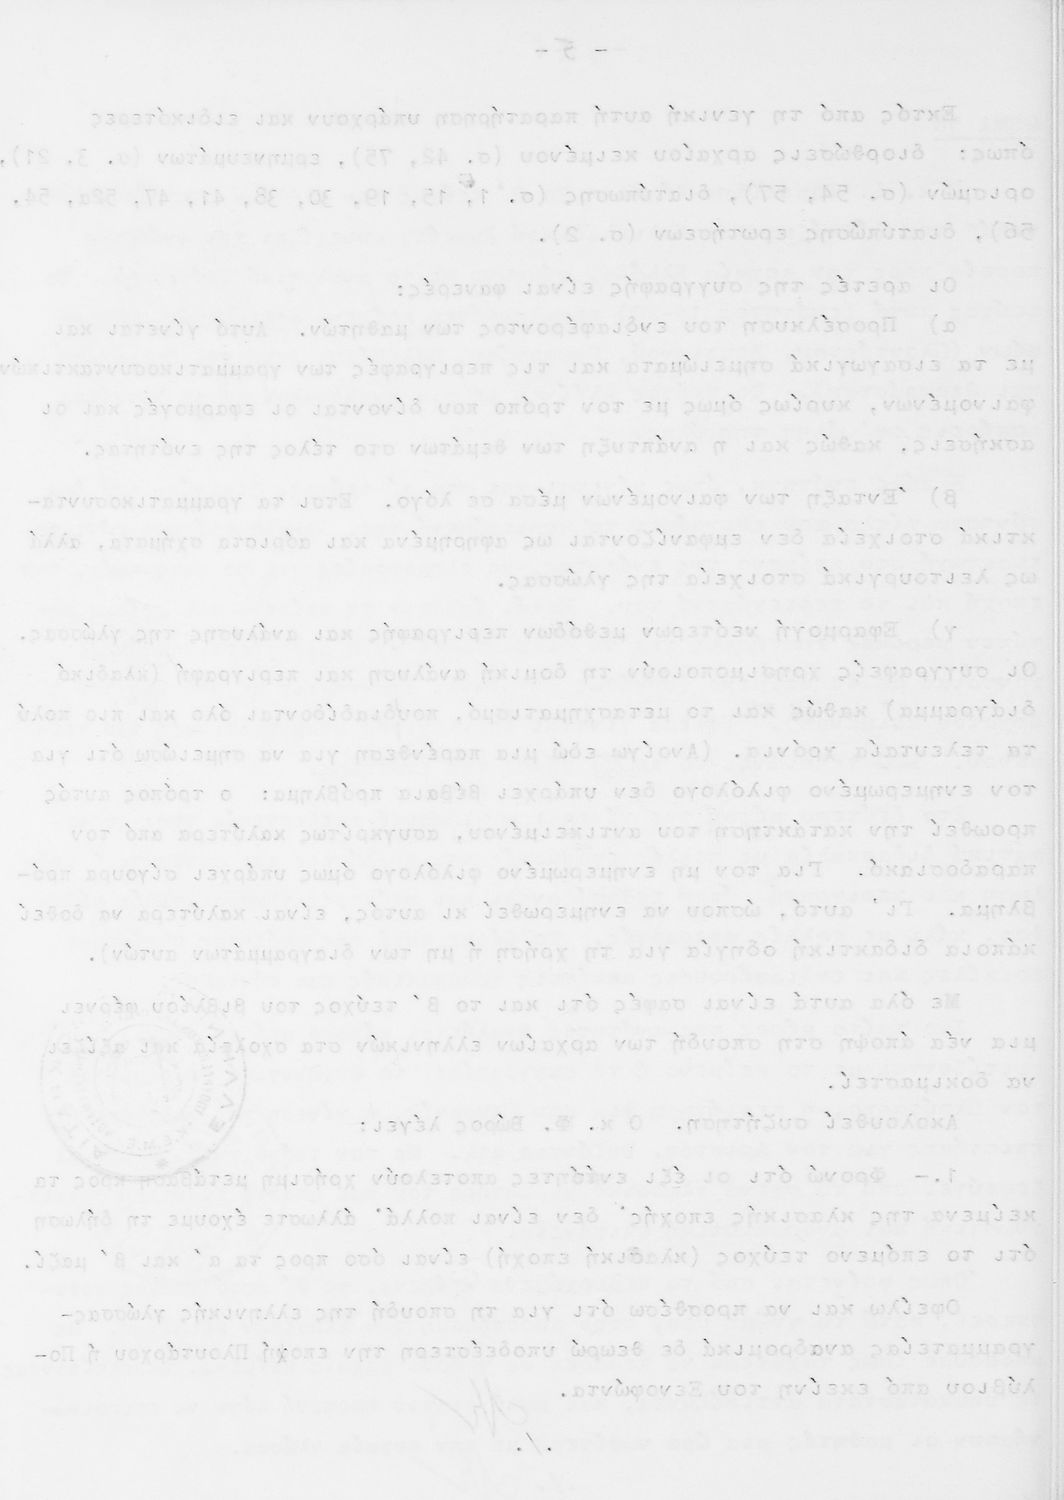 - 5 -
Εκτός από τη γενική αυτή παρατήρηση υπάρχουν και ειδικότερες
όπως: διορθώσεις αρχαίου κειμένου (σ. 42, 75), ερμηνευμάτων (σ. 3, 21),
ορισμών (σ. 54, 57), διατύπωσης (σ. 1, 15, 19, 30, 38, 41, 47, 52α, 54,
56), διατύπωσης ερωτήσεων (σ. 2).
Οι αρετές της συγγραφής είναι φανερές:
α) Προσέλκυση του ενδιαφέροντος των μαθητών. Αυτό γίνεται και
με τα εισαγωγικά σημειώματα και τις περιγραφές των γραμματικοσυντακτικών
φαινομένων, κυρίως όμως με τον τρόπο που δίνονται οι εφαρμογές και οι
ασκήσεις, καθώς και η ανάπτυξη των θεμάτων στο τέλος της ενότητας.
β) Ένταξη των φαινομένων μέσα σε λόγο. Έτσι τα γραμματικοσυντα-
κτικά στοιχεία δεν εμφανίζονται ως αφηρημένα και αόριστα σχήματα, αλλά
ως λειτουργικά στοιχεία της γλώσσας.
γ) Εφαρμογή νεότερων μεθόδων περιγραφής και ανάλυσης της γλώσσας.
Οι συγγραφείς χρησιμοποιούν τη δομική ανάλυση και περιγραφή (κλαδικό
διάγραμμα) καθώς και το μετασχηματισμό, που διαδίδονται όλο και πιο πολύ
τα τελευταία χρόνια. (Ανοίγω εδώ μια παρένθεση για να σημειώσω ότι για
τον ενημερωμένο φιλόλογο δεν υπάρχει βέβαια πρόβλημα: ο τρόπος αυτός
προωθεί την κατάκτηση του αντικειμένου, ασυγκρίτως καλύτερα από τον
παραδοσιακό. Για τον μη ενημερωμένο φιλόλογο όμως υπάρχει σίγουρα πρό-
βλημα. Γι' αυτό, ώσπου να ενημερωθεί κι αυτός, είναι καλύτερα να δοθεί
κάποια διδακτική οδηγία για τη χρήση ή μη των διαγραμμάτων αυτών).
Με όλα αυτά είναι σαφές ότι και το Β' τεύχος του βιβλίου φέρνει
μια νέα άποψη στη σπουδή των αρχαίων ελληνικών στα σχολεία και αξίζει
να δοκιμαστεί.
Ακολουθεί συζήτηση. Ο κ. Φ. Βώρος λέγει:
1.- Φρονώ ότι οι έξι ενότητες αποτελούν χρήσιμη μετάβαση προς τα
κείμενα της κλασικής εποχής· δεν είναι πολλά· άλλωστε έχουμε τη δήλωση
ότι το επόμενο τεύχος (κλασική εποχή) είναι όσο προς τα α' και β' μαζί.
Οφείλω και να προσθέσω ότι για τη σπουδή της ελληνικής γλώσσας-
γραμματείας αναδρομικά δε θεωρώ υποδεέστερη την εποχή Πλουτάρχου ή Πο-
λύβιου από εκείνη του Ξενοφώντα.
./.